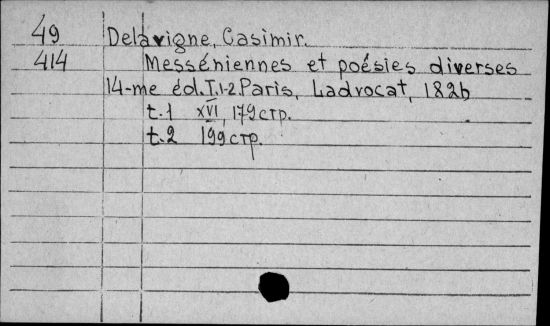 49 Delavigne, Casimir.
414 Messéniennes et poésies diverses
14-me éd. T.1-2 Paris, Ladvocat,
t.1 XVI, 179 стр.
t.2 199 стр.